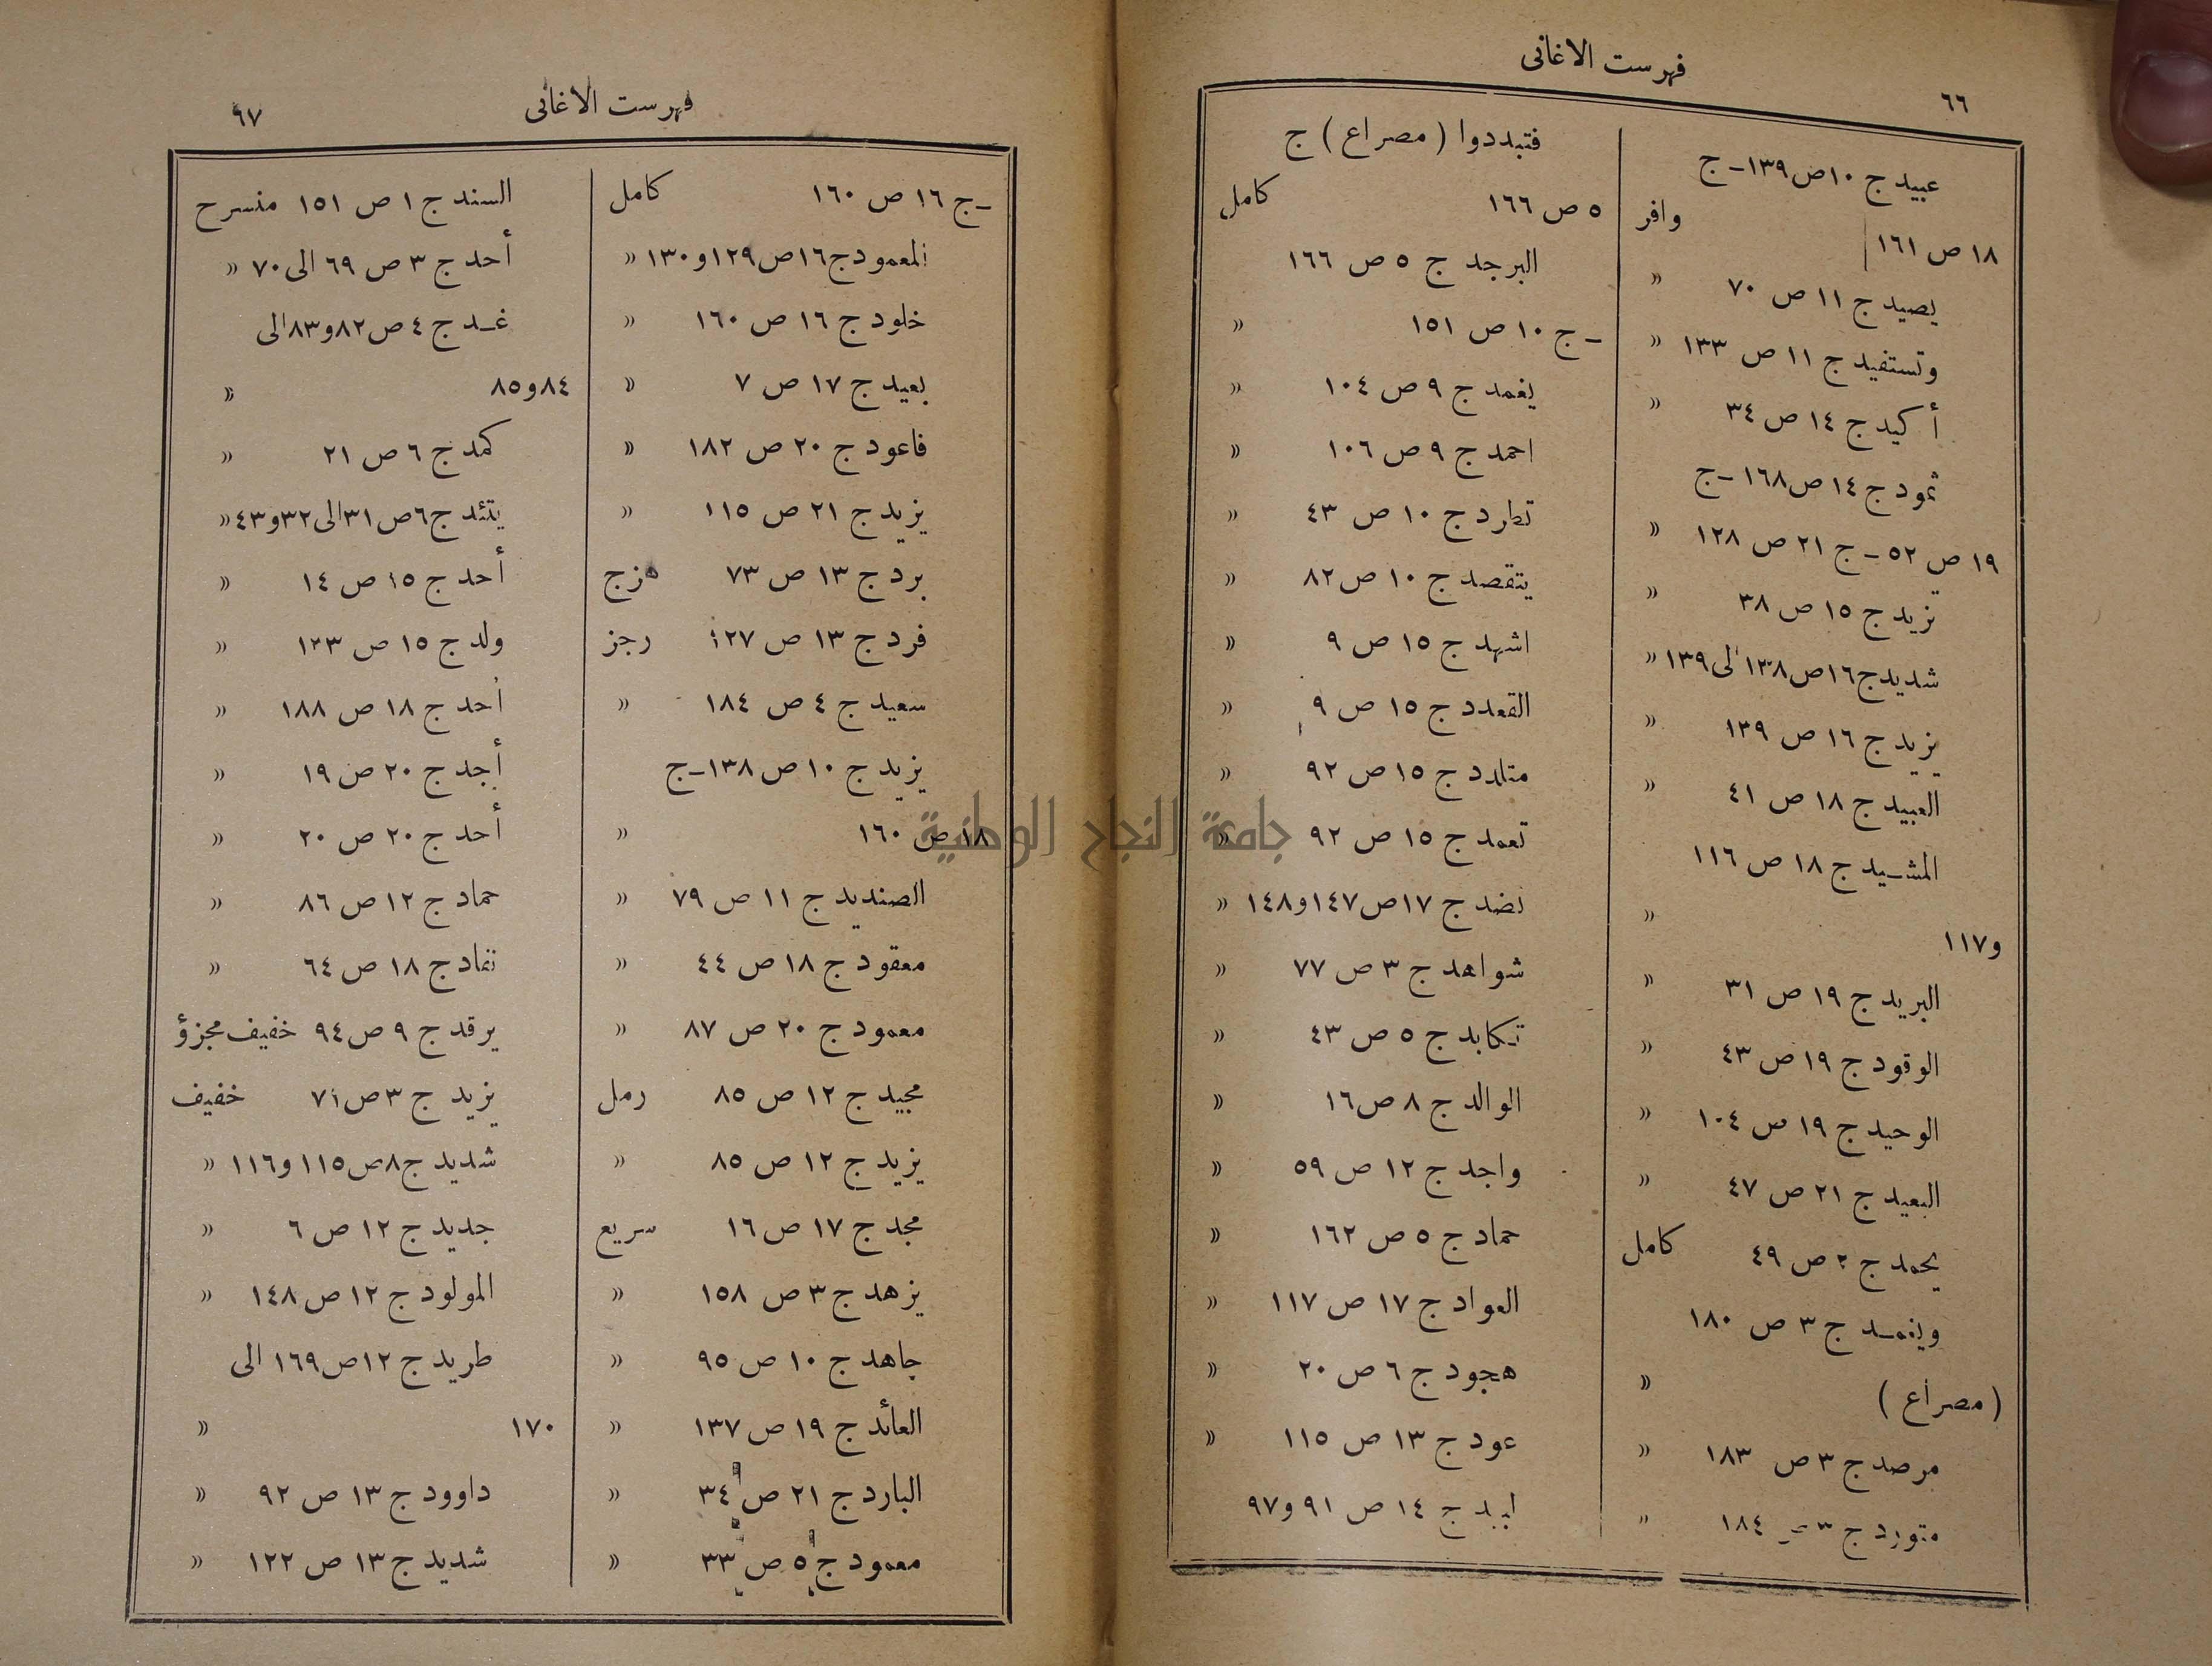 فهرست الاغانى
٦٦
عبيد ج ١٠ ص ١٣٩ - ج
١٨ ص ١٦١ وافر
يصيد ج ١١ ص ٧٠ »
وتستفيد ج ١١ ص ١٣٣ »
أكيد ج ١٤ ص ٣٤ »
ثمود ج ١٤ ص ١٦٨ - ج
١٩ ص ٥٢ - ج ٢١ ص ١٢٨ »
نزيد ج ١٥ ص ٣٨ »
شديد ج ١٦ ص ١٣٨ الى ١٣٩ »
يزيد ج ١٦ ص ١٣٩ »
العبيد ج ١٨ ص ٤١ »
المشيد ج ١٨ ص ١١٦
و١١٧ »
البريد ج ١٩ ص ٣١ »
الوقود ج ١٩ ص ٤٣ »
الوحيد ج ١٩ ص ١٠٤ »
البعيد ج ٢١ ص ٤٧ »
يحمد ج ٢ ص ٤٩ كامل
ويغمد ج ٣ ص ١٨٠
(مصراع) »
مرصد ج ٣ ص ١٨٣ »
متورد ج ٣ ص ١٨٤ »
فتبددوا (مصراع) ج
٥ ص ١٦٦ كامل
البرجد ج ٥ ص ١٦٦
- ج ١٠ ص ١٥١ »
يغمد ج ٩ ص ١٠٤ »
احمد ج ٩ ص ١٠٦ »
تطارد ج ١٠ ص ٤٣ »
يتقصد ج ١٠ ص ٨٢ »
اشهد ج ١٥ ص ٩ »
القعدد ج ١٥ ص ٩ »
متلدد ج ١٥ ص ٩٢ »
تعمد ج ١٥ ص ٩٢ »
نضد ج ١٧ ص ١٤٧ و١٤٨ »
شواهد ج ٣ ص ٧٧ »
تكابد ج ٥ ص ٤٣ »
الوالد ج ٨ ص ١٦ »
واجد ج ١٢ ص ٥٩ »
حماد ج ٥ ص ١٦٢ »
العواد ج ١٧ ص ١١٧ »
هجود ج ٦ ص ٢٠ »
عود ج ١٣ ص ١١٥ »
لبيد ج ١٤ ص ٩١ و٩٧
فهرست الاغانى
٦٧
- ج ١٦ ص ١٦٠ كامل
المعمود ج ١٦ ص ١٢٩ و١٣٠ »
خلود ج ١٦ ص ١٦٠ »
بعيد ج ١٧ ص ٧ »
فاعود ج ٢٠ ص ١٨٢ »
يزيد ج ٢١ ص ١١٥ »
برد ج ١٣ ص ٧٣ هزج
فرد ج ١٣ ص ١٢٧ رجز
سعيد ج ٤ ص ١٨٤ »
يزيد ج ١٠ ص ١٣٨ - ج
١٨ ص ١٦٠ »
الصنديد ج ١١ ص ٧٩ »
معقود ج ١٨ ص ٤٤ »
معمود ج ٢٠ ص ٨٧ »
مجيد ج ١٢ ص ٨٥ رمل
يزيد ج ١٢ ص ٨٥ »
مجد ج ١٧ ص ١٦ سريع
يزهد ج ٣ ص ١٥٨ »
جاهد ج ١٠ ص ٩٥ »
العائد ج ١٩ ص ١٣٧ »
البارد ج ٢١ ص ٣٤ »
معمود ج ٥ ص ٣٣ »
السند ج ١ ص ١٥١ منسرح
أحد ج ٣ ص ٦٩ الى ٧٠ »
غد ج ٤ ص ٨٢ و٨٣ الى
٨٤ و٨٥ »
كمد ج ٦ ص ٢١ »
يتئد ج ٦ ص ٣١ الى ٣٢ و٤٣ »
أحد ج ١٥ ص ١٤ »
ولد ج ١٥ ص ١٢٣ »
احد ج ١٨ ص ١٨٨ »
أجد ج ٢٠ ص ١٩ »
أحد ج ٢٠ ص ٢٠ »
حماد ج ١٢ ص ٨٦ »
نفاد ج ١٨ ص ٦٤ »
يرقد ج ٩ ص ٩٤ خفيف مجزؤ
يزيد ج ٣ ص ٧١ خفيف
شديد ج ٨ ص ١١٥ و١١٦ »
جديد ج ١٢ ص ٦ »
المولود ج ١٢ ص ١٤٨ »
طريد ج ١٢ ص ١٦٩ الى
١٧٠ »
داوود ج ١٣ ص ٩٢ »
شديد ج ١٣ ص ١٢٢ »
جامعة النجاح الوطنية